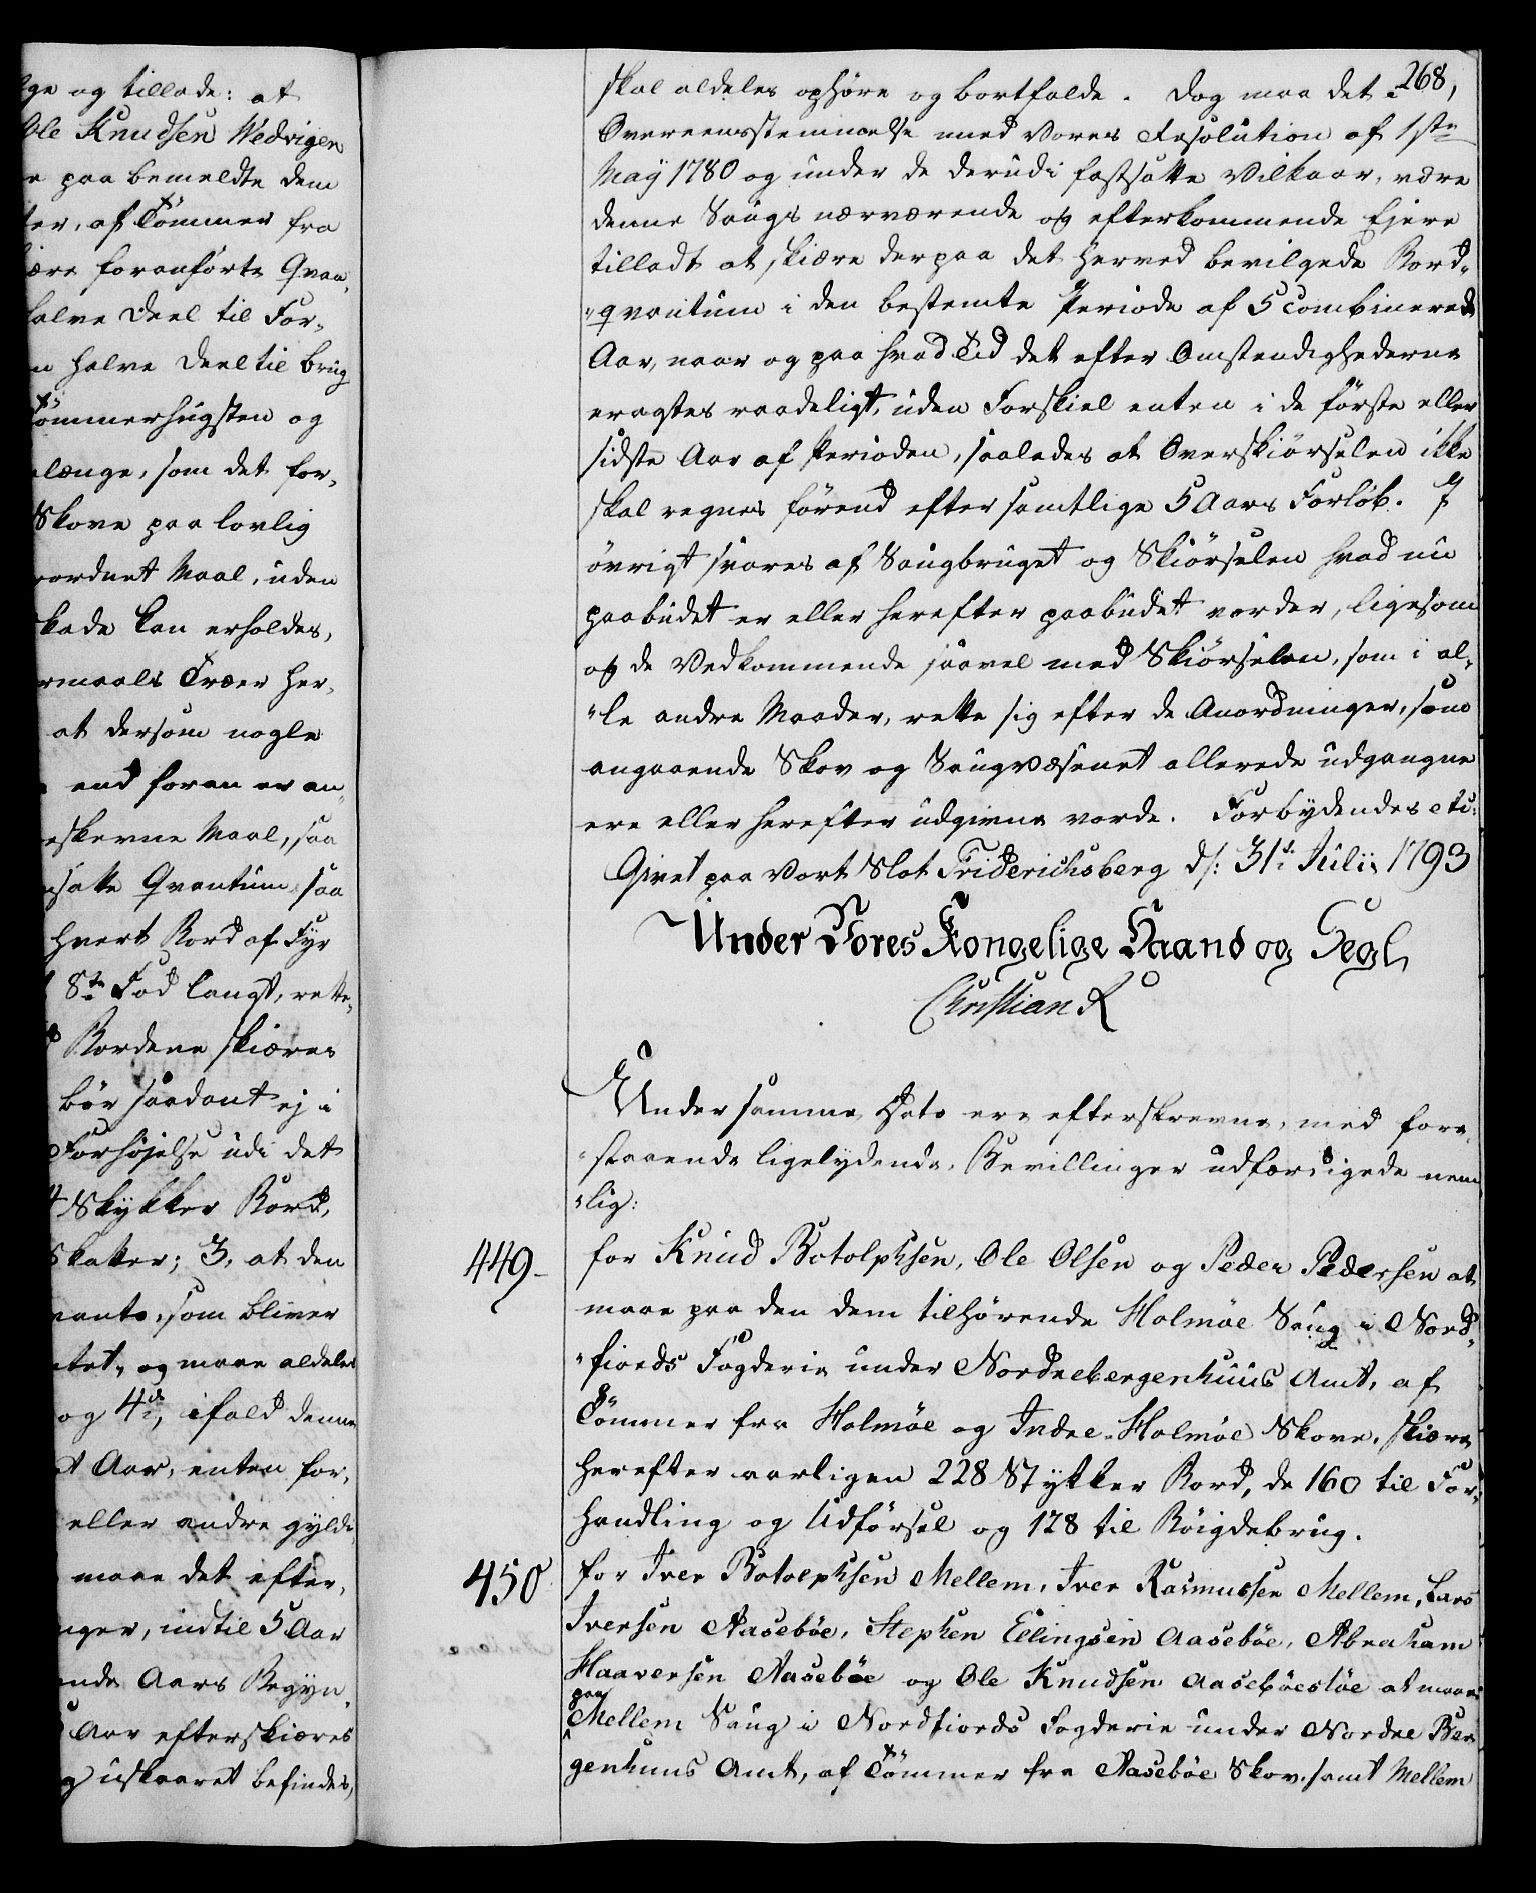 ge og tillade: at
Ole Knudsen Wedvigen
e paa bemeldte dem
ter, af Tömmer fra
ære foranförte Qvan,
halve Deel til For-
n halve Deel til brug
Tömmerhugsten og
længe, som det for,
Skove paa lovlig
rordnet Maal, uden
kade kan erholdes,
rmaals Træer her,
at dersom nogle
end foran er an,
eskrevne Maal, saa
satte Qvantum, saa
hvert Bord af Fyr
8te Fod langt, rette,
Bordene skiæres
bör saadant ej i
Forhöjelse udi det
Stykker Bord,
Skatter; 3, at den
vants, som bliver
tet, og maae aldeles
og 4de, ifald denne
t Aar, enten for,
eller andre gyldi
maae det efter,
nger, indtil 5 Aar
ende Aars Begyn,
Aar efterskiæres
g uskaaret befindes,
268,
skal aldeles ophöre og bortfalde. Dog maa det i
Overeensstemmelse med Vores Resolution af 1ste
May 1780 og under de derudi fastsatte Vilkaar, være
denne Saugs nærværende og efterkommende Ejere
tilladt at skiære derpaa det herved bevilgede Bord-
"qvantum i den bestemte Periode af 5 combinerede
Aar, naar og paa hvad Tid det efter Omstendighederne
eragtes raadeligt, uden Forskiel enten i de förste eller
sidste Aar af Perioden, saaledes at Overskiörselen ikke
skal regnes förend efter samtlige 5 Aars Forlöb. J
övrigt svares af Saugbruget og Skiörselen hvad nu
paabudet er eller herefter paabudet vorder, ligesom
og de Vedkommende saavel med Skiörselen, som i al-
"le andre Maader, rette sig efter de Anordninger, som
angaaende Skov og Saugvæsenet allerede udgangne
ere eller herefter udgivne vorde. Forbydendes etc:
Givet paa Vort Slot Friderichsberg d: 31te Julii 1793
Under Vores Kongelige Haand og Segl
Christian R
Under samme Dato ere efterskrevne, med fore-
"staaende ligelydende, Bevillinger udfærdigede nem
"lig:
449-
for Knud Botolphsen, Ole Olsen og Peder Pedersen at
maae paa den dem tilhörende Holmöe Saug i Nord-
"fiords Fogderie under Nordrebergenhuus Amt, af
Tömmer fra Holmöe og Indre-Holmöe Skove, skiære
herefter aarligen 228 Stykker Bord, de 160 til For-
handling og Udförsel og 128 til Böigdebrug.
450
for Iver Botolphsen Mellem, Iver Rasmussen Mellem, Lars
Iversen Aaseböe, Stephen Ellingsen Aaseböe, Abraham
Haaversen Aaseböe og Ole Knudsen Aaseböestöe at maae
paa
Mellem Saug i Nordfiords Fogderie under Nordre Ber
genhuus Amt, af Tömmer fra Aaseböe Skov, samt Mellem